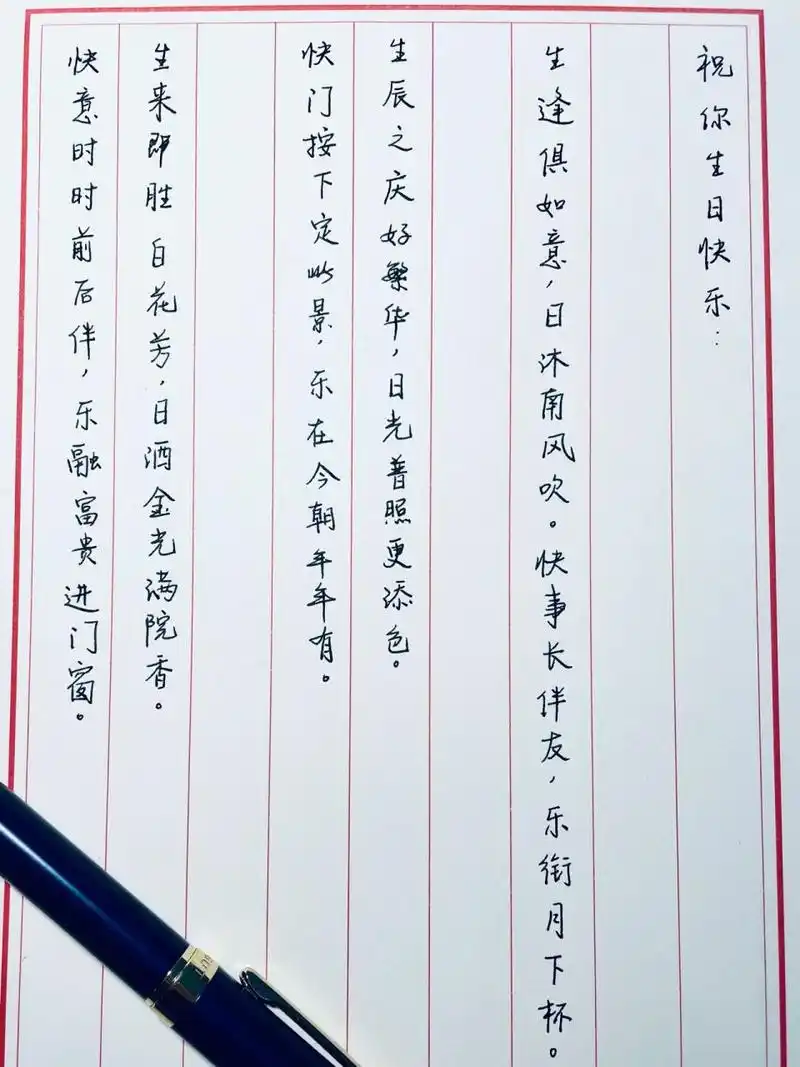 祝你生日快乐：
生逢俱如意，日沐南风吹。快事长伴友，乐衔月下杯。
生辰之庆好繁华，日光普照更添色。
快门按下定此景，乐在今朝年年有。
生来即胜百花芳，日洒金光满院香。
快意时时前后伴，乐融富贵进门窗。